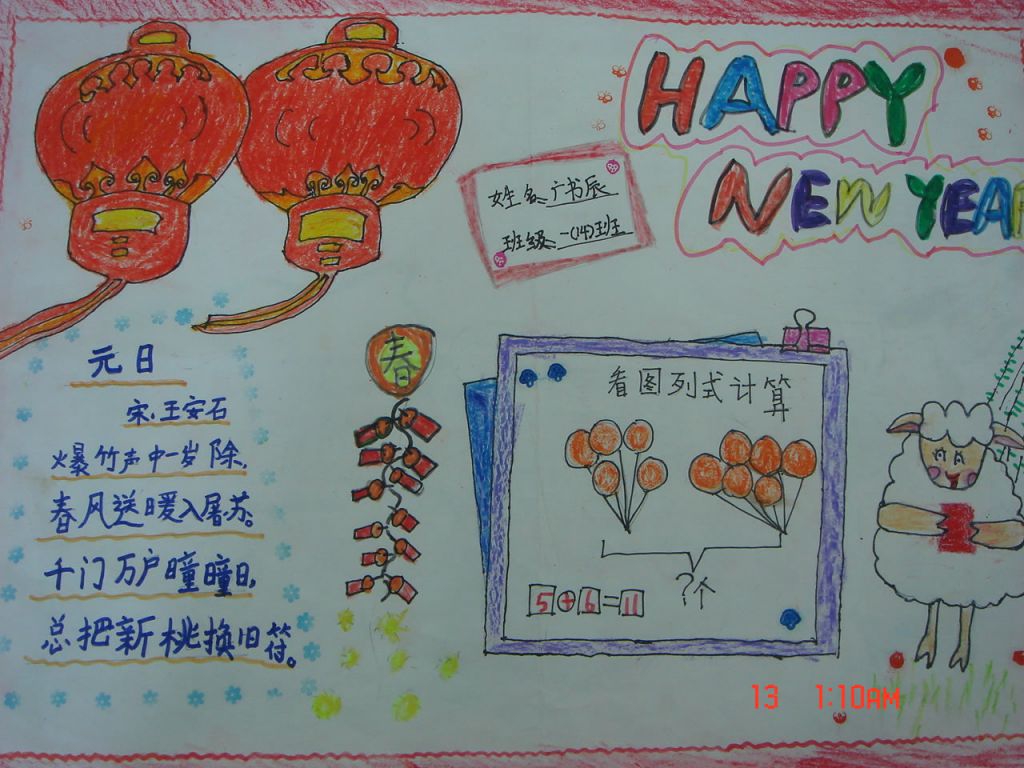 HAPPY
NEW YEAR
姓名:广书辰
班级:一(14)班
元日
宋.王安石
爆竹声中一岁除,
春风送暖入屠苏。
千门万户曈曈日,
总把新桃换旧符。
春
看图列式计算
?个
5+6=11
13 1:10AM